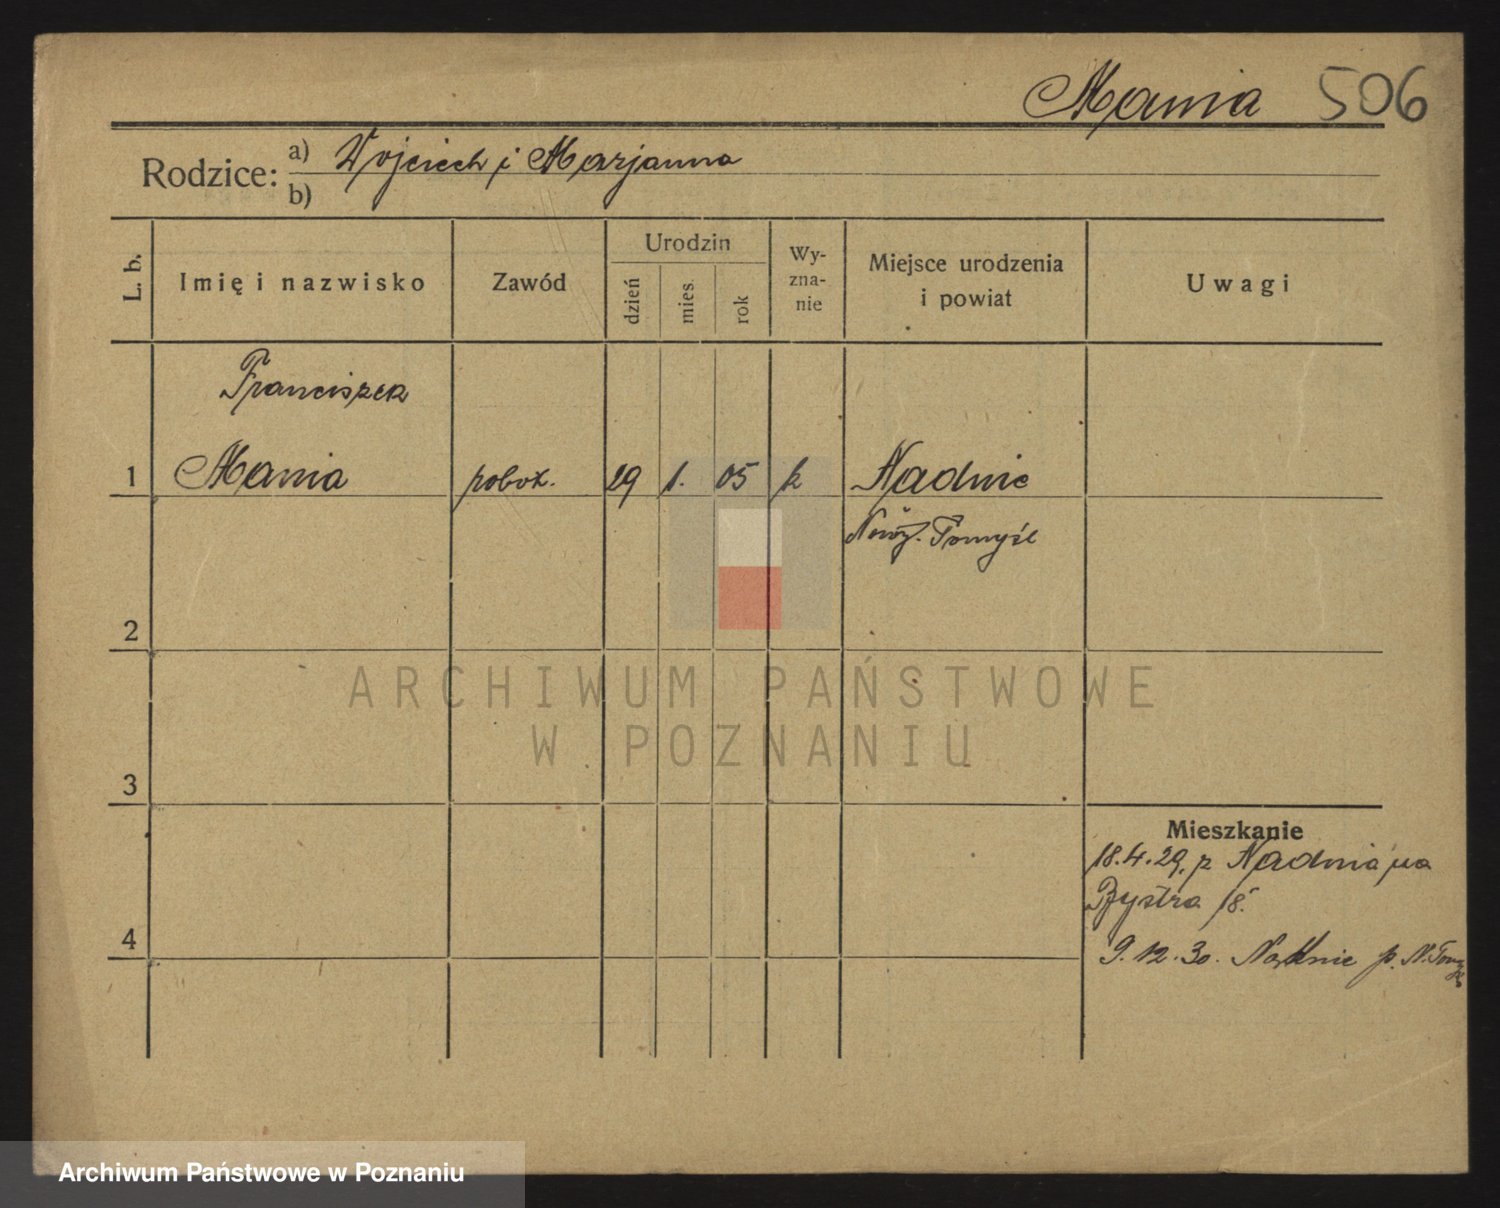 Mania 506
Rodzice: a) Wojciech i Marjanna
b)
L. b.
Imię i nazwisko
Zawód
Urodzin
dzień
mies.
rok
Wy-
zna-
nie
Miejsce urodzenia
i powiat
Uwagi
Franciszek
1 Mania robotn. 29 1. 05 k Nadnie
Nowy. Tomyśl
2
3
4
Mieszkanie
18.4.29. z Nadnia na
Bystra 18.
9.12.30. Nadnie p. N. Tomyśl
ARCHIWUM PAŃSTWOWE
W POZNANIU
Archiwum Państwowe w Poznaniu